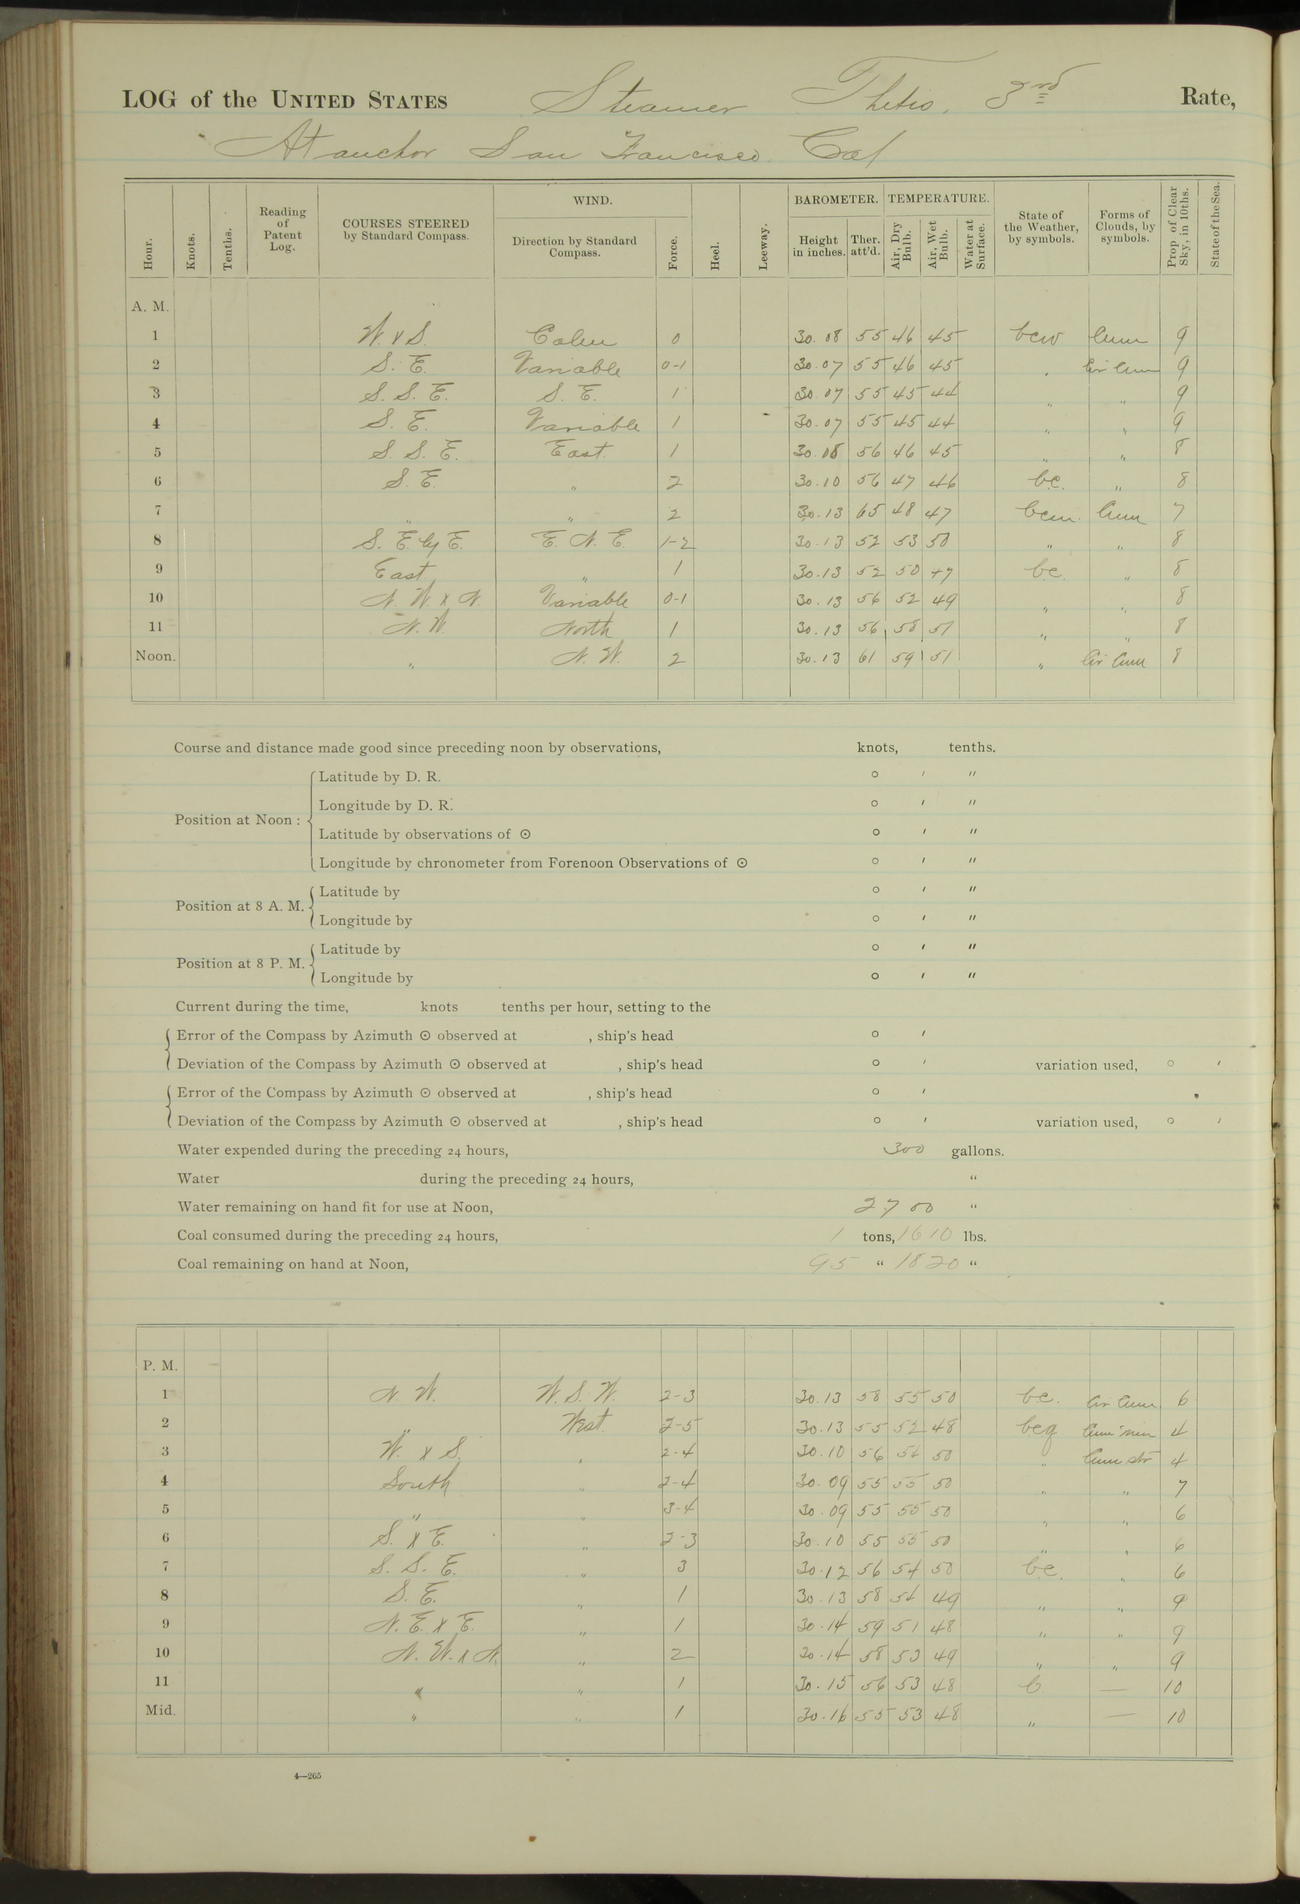 LOG of the UNITED STATES Steamer Thetis, 3rd Rate,
At anchor San Francisco Cal
Hour. Knots. Tenths. Reading of Patent Log. COURSES STEERED by Standard Compass. WIND. Direction by Standard Compass. Force. Heel. Leeway. BAROMETER. Height in inches. Ther. att'd. TEMPERATURE. Air, Dry Bulb. Air, Wet Bulb. Water at Surface. State of the Weather, by symbols. Forms of Clouds, by symbols. Prop of Clear Sky, in 10ths. State of the Sea.
A. M.
1 W. x S. Calm 0 30.08 55 46 45 bcw Cum 9
2 S. E. Variable 0-1 30.07 55 46 45 " Cir Cum 9
3 S. S. E. S. E. 1 30.07 55 45 44 " " 9
4 S. E. Variable 1 30.07 55 45 44 " " 9
5 S. S. E. East 1 30.08 56 46 45 " " 8
6 S. E. " 2 30.10 56 47 46 bc. " 8
7 " " 2 30.13 65 48 47 bcm. Cum 7
8 S. E. by E. E. N. E. 1-2 30.13 52 53 50 " " 8
9 East " 1 30.13 52 50 47 bc. " 8
10 N. W. x N. Variable 0-1 30.13 56 52 49 " " 8
11 N. W. North 1 30.13 56 58 51 " " 8
Noon. " N. W. 2 30.13 61 59 51 " Cir Cum 8
Course and distance made good since preceding noon by observations, knots, tenths.
Position at Noon :
Latitude by D. R. ° ' "
Longitude by D. R. ° ' "
Latitude by observations of ⊙ ° ' "
Longitude by chronometer from Forenoon Observations of ⊙ ° ' "
Position at 8 A. M.
Latitude by ° ' "
Longitude by ° ' "
Position at 8 P. M.
Latitude by ° ' "
Longitude by ° ' "
Current during the time, knots tenths per hour, setting to the
Error of the Compass by Azimuth ⊙ observed at , ship's head ° '
Deviation of the Compass by Azimuth ⊙ observed at , ship's head ° ' variation used, ° '
Error of the Compass by Azimuth ⊙ observed at , ship's head ° '
Deviation of the Compass by Azimuth ⊙ observed at , ship's head ° ' variation used, ° '
Water expended during the preceding 24 hours, 300 gallons.
Water during the preceding 24 hours, "
Water remaining on hand fit for use at Noon, 2700 "
Coal consumed during the preceding 24 hours, 1 tons, 1610 lbs.
Coal remaining on hand at Noon, 95 " 1820 "
P. M.
1 N. W. W. S. W. 2-3 30.13 58 55 50 bc. Cir Cum 6
2 " West. 2-5 30.13 55 52 48 bcq Cum nim 4
3 W. x S. " 2-4 30.10 56 54 50 " Cum str 4
4 South " 2-4 30.09 55 55 50 " " 7
5 " " 3-4 30.09 55 55 50 " " 6
6 S. x E. " 2-3 30.10 55 55 50 " " 6
7 S. S. E. " 3 30.12 56 54 50 bc. " 6
8 S. E. " 1 30.13 58 54 49 " " 9
9 N. E. x E. " 1 30.14 59 51 48 " " 9
10 N. W. x N. " 2 30.14 58 53 49 " " 9
11 " " 1 30.15 56 53 48 b — 10
Mid. " " 1 30.16 55 53 48 " — 10
4—265